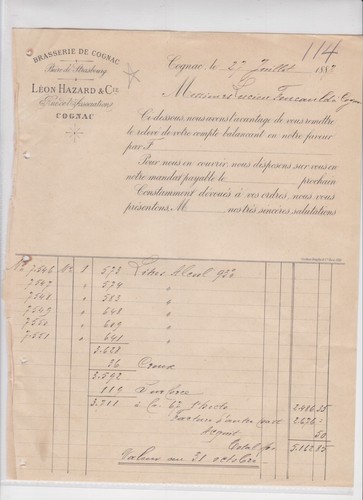 114
BRASSERIE DE COGNAC
Bière de Strasbourg
LÉON HAZARD & CIE
COGNAC
Cognac, le 27 Juillet 1885
Messieurs Lucien Foucauld de Cognac
Ci-dessous, nous avons l'avantage de vous remettre
le relevé de votre compte balançant en notre faveur
par F.
Pour nous en couvrir, nous disposons sur vous en
notre mandat payable le prochain
Constamment dévoués à vos ordres, nous vous
présentons, M nos très sincères salutations
No 7.546 No 1 573 Litres Alcool 92
7.547 " 574 "
7.548 " 583 "
7.549 " 648 "
7.550 " 609 "
7.551 " 641 "
3.628
36 Creux
3.592
119 Surforce
3.711 à 2.416,35
Facture d'autre part 2.676
50
Total frs 5.162,85
Valeur au 31 octobre